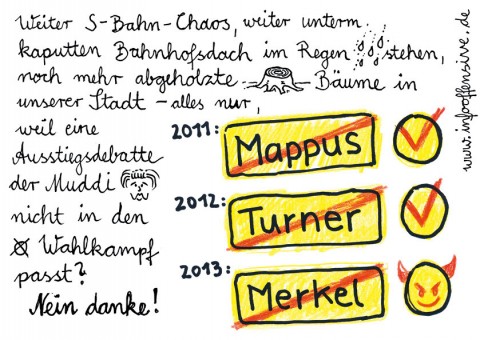 Weiter S-Bahn-Chaos, weiter unterm
kaputten Bahnhofsdach im Regen stehen,
noch mehr abgeholzte Bäume in
unserer Stadt - alles nur,
weil eine
Ausstiegsdebatte
der Muddi
nicht in den
Wahlkampf
passt?
Nein danke!
2011:
Mappus
2012:
Turner
2013:
Merkel
www.infooffensive.de